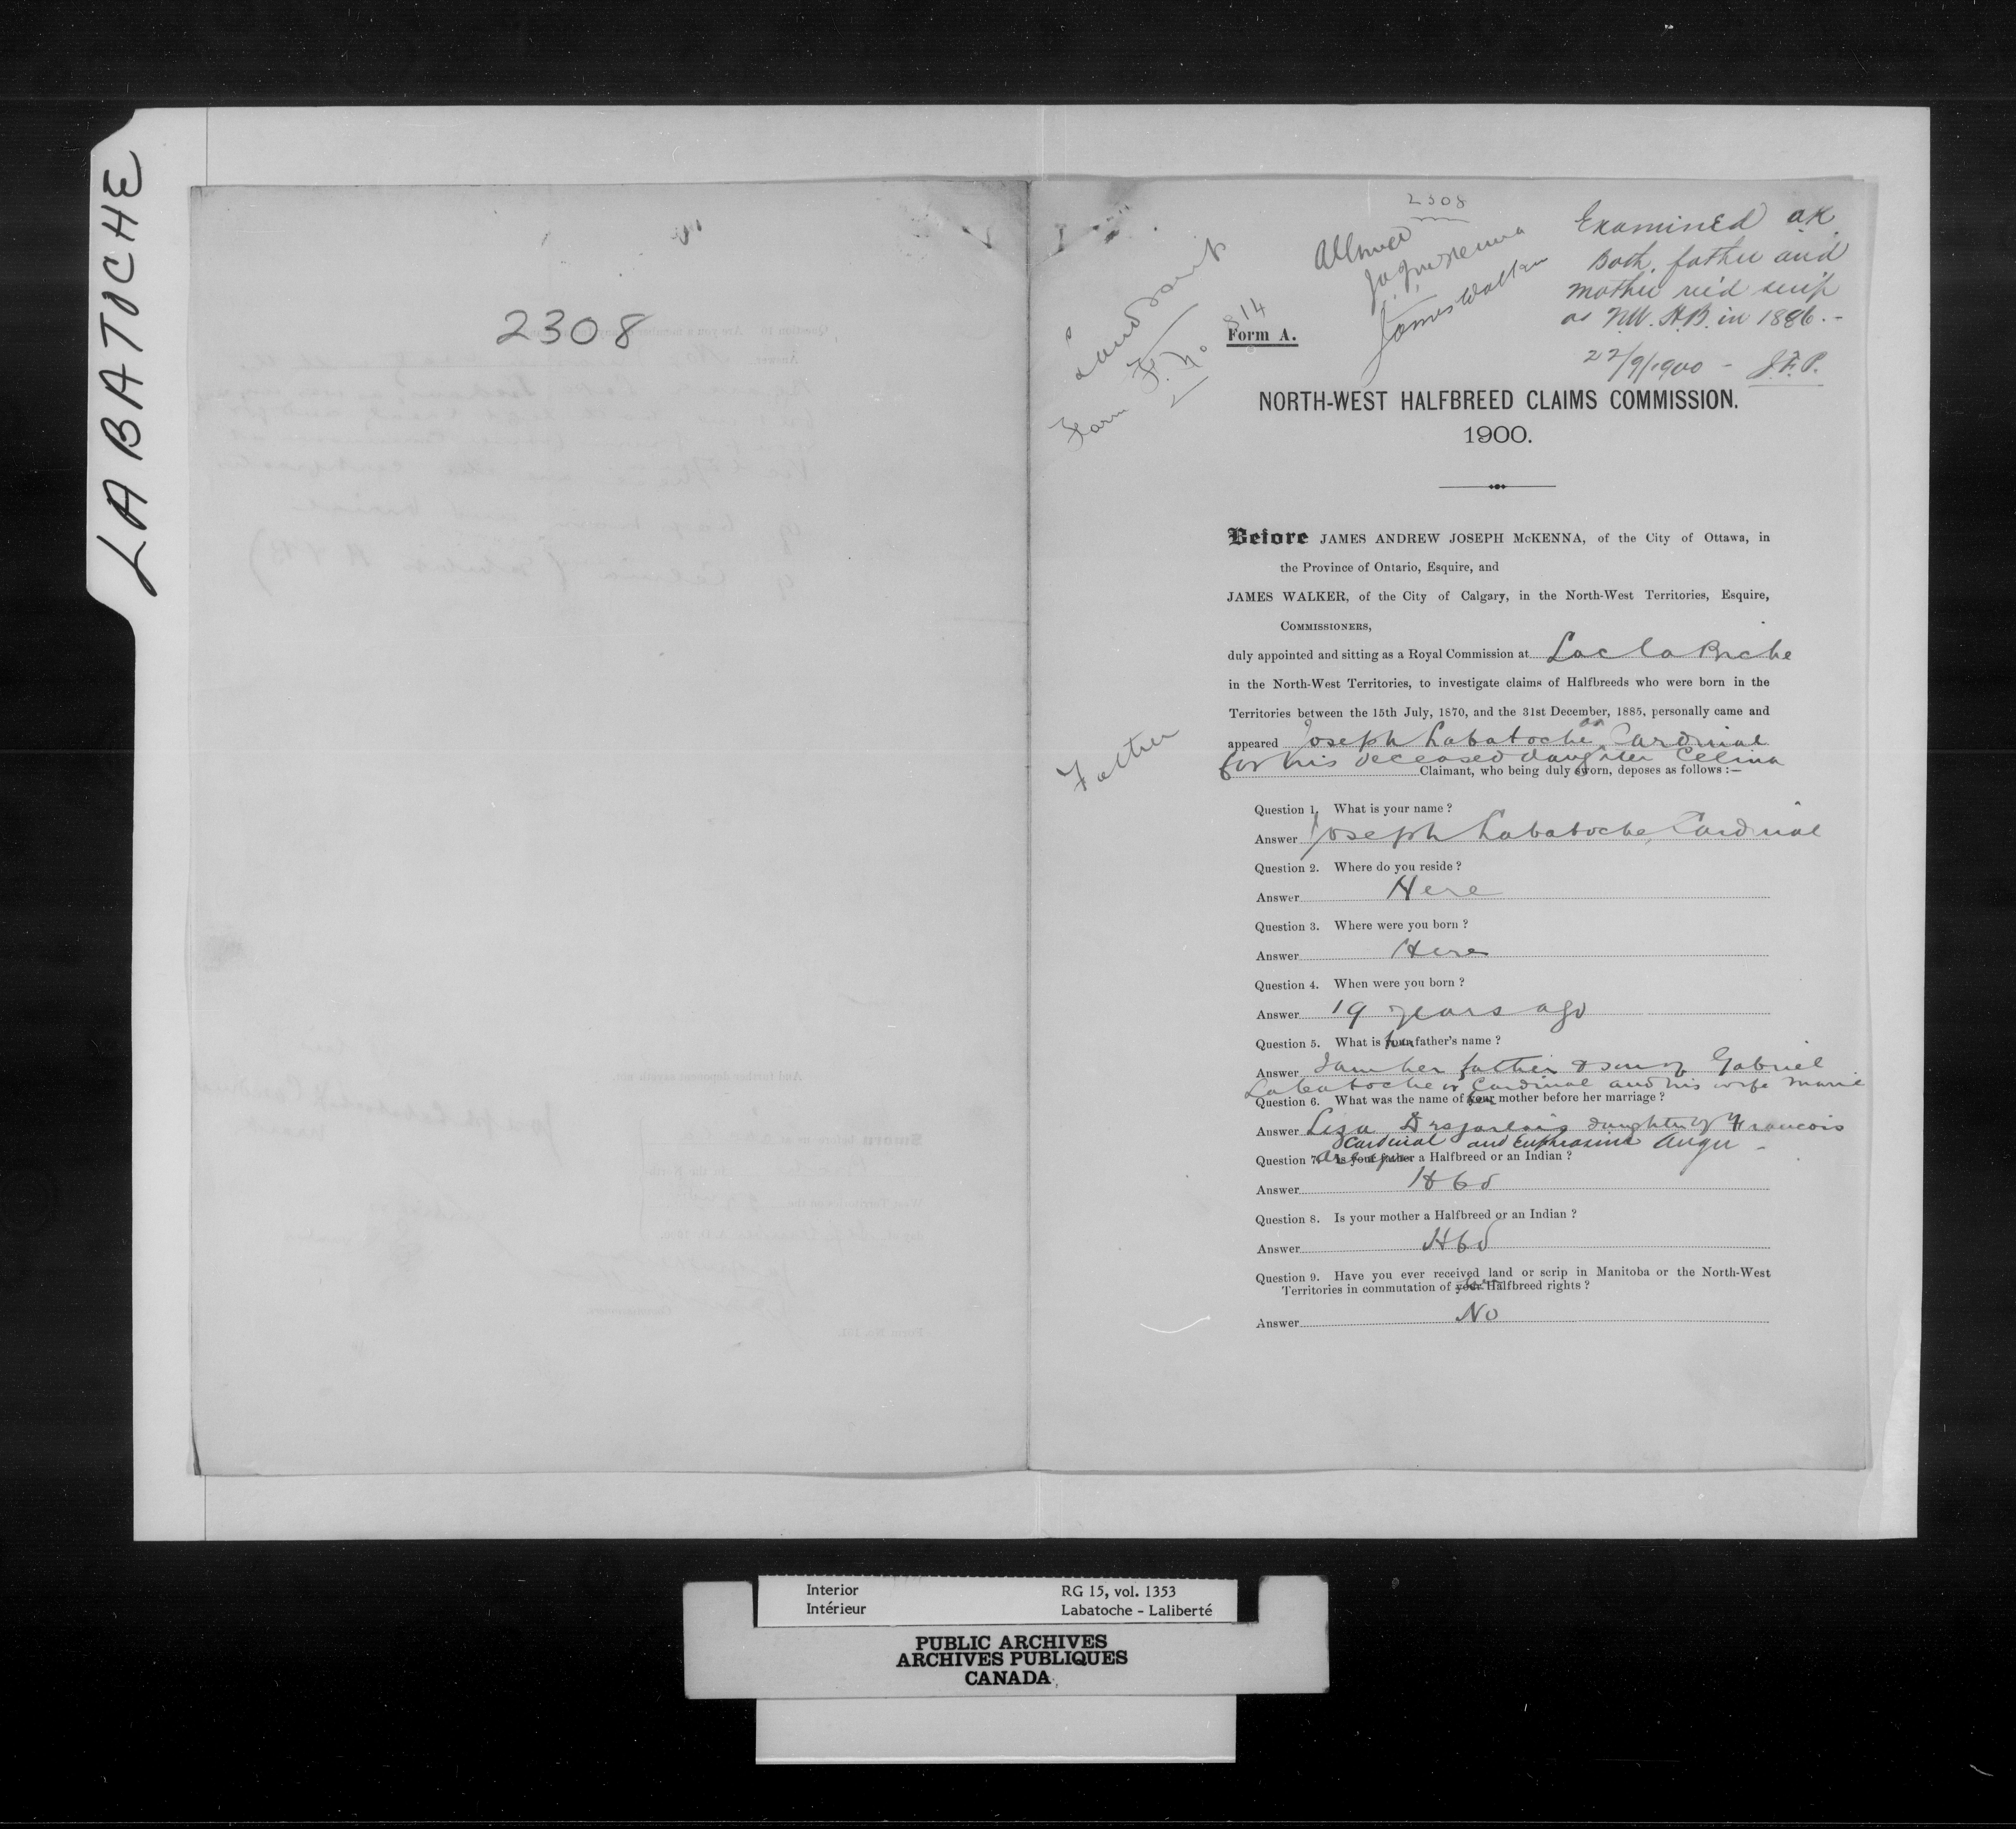 LABATOCHE
2308
2308
Allowed
James Walker
Examined OK
Both father and
mother rec'd scrip
as N.W. H.B. in 1886.-
22/9/1900 - J.F.P.
Land Scrip
Form F. No 814
Form A.
NORTH-WEST HALFBREED CLAIMS COMMISSION.
1900.
Before JAMES ANDREW JOSEPH McKENNA, of the City of Ottawa, in
the Province of Ontario, Esquire, and
JAMES WALKER, of the City of Calgary, in the North-West Territories, Esquire,
COMMISSIONERS,
duly appointed and sitting as a Royal Commission at Lac la Biche
in the North-West Territories, to investigate claims of Halfbreeds who were born in the
Territories between the 15th July, 1870, and the 31st December, 1885, personally came and
appeared Joseph Labatoche or Cardinal
for his deceased daughter Celina
Claimant, who being duly sworn, deposes as follows :—
Father
Question 1. What is your name ?
Answer Joseph Labatoche, Cardinal
Question 2. Where do you reside ?
Answer Here
Question 3. Where were you born ?
Answer Here
Question 4. When were you born ?
Answer 19 years ago
Question 5. What is her father's name ?
Answer I am her father & son of Gabriel
Labatoche or Cardinal and his wife Marie
Question 6. What was the name of her mother before her marriage ?
Answer Liza Desjarlais daughter of Francois
Cardinal and Euphrasine Auger -
Question 7. Are you a Halfbreed or an Indian ?
Answer Hbd
Question 8. Is your mother a Halfbreed or an Indian ?
Answer Hbd
Question 9. Have you ever received land or scrip in Manitoba or the North-West
Territories in commutation of her Halfbreed rights ?
Answer No
Interior
Intérieur
RG 15, vol. 1353
Labatoche - Laliberté
PUBLIC ARCHIVES
ARCHIVES PUBLIQUES
CANADA